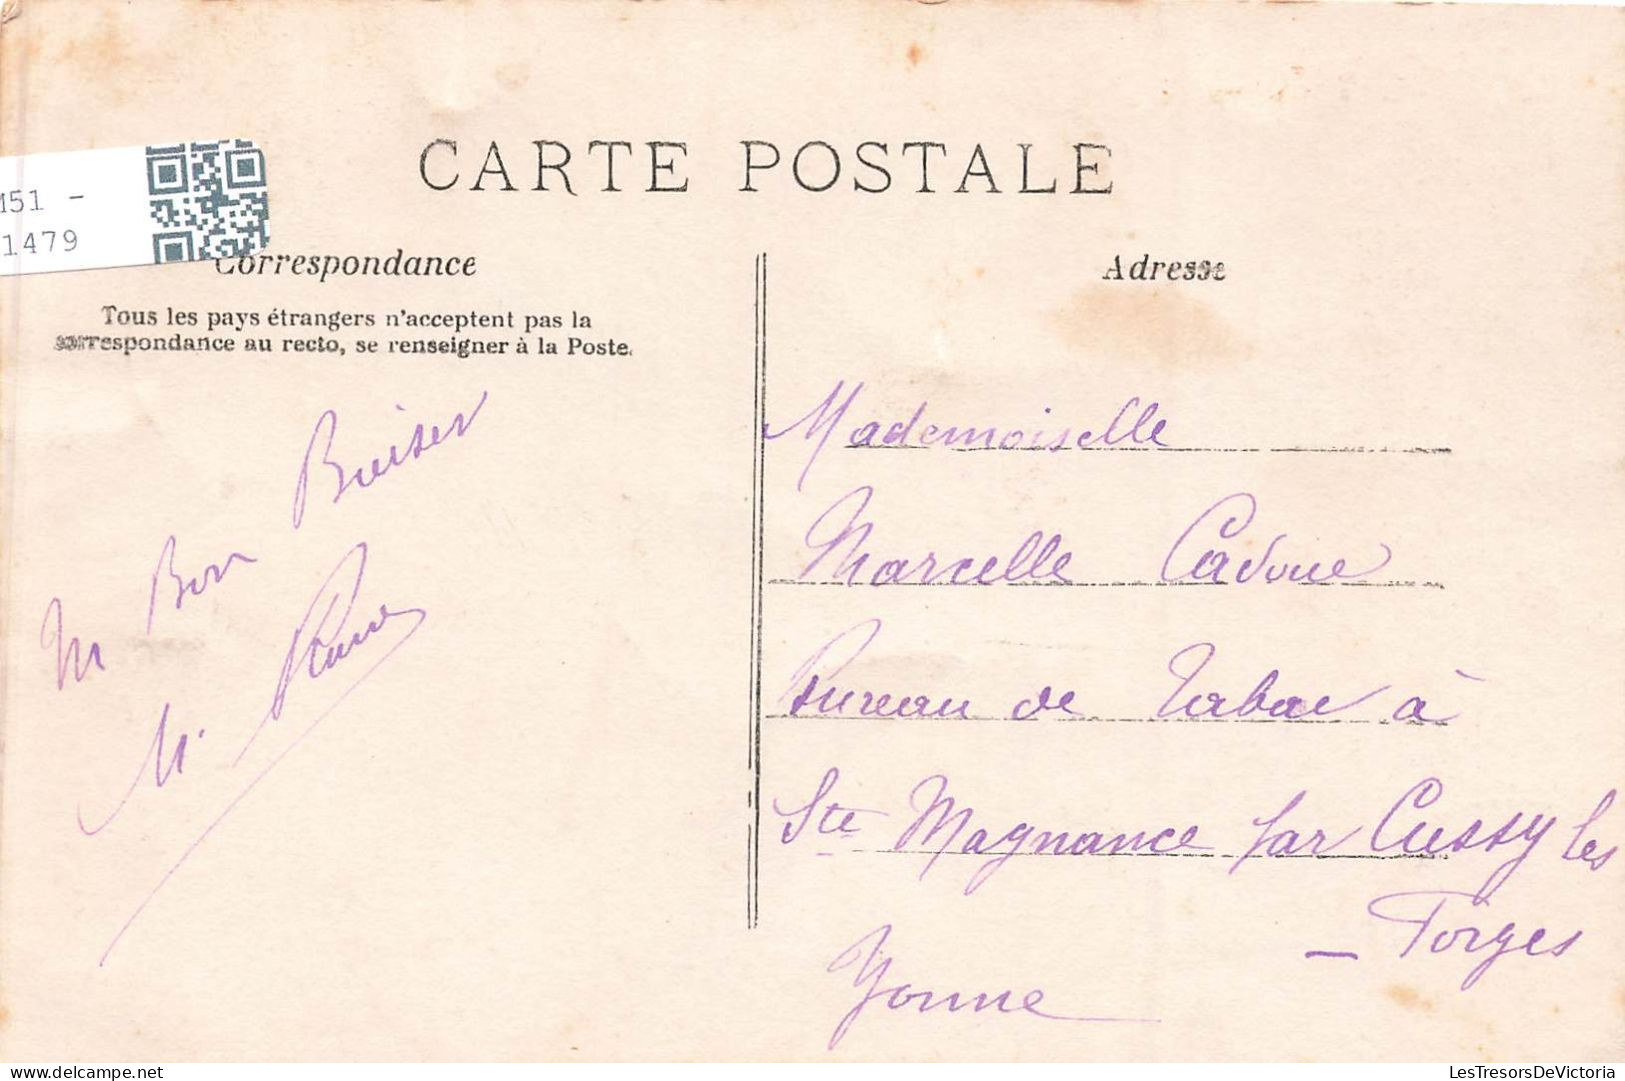 CARTE POSTALE
M51 -
1479
Correspondance
Tous les pays étrangers n'acceptent pas la
correspondance au recto, se renseigner à la Poste.
Bon
M.
Adresse
Mademoiselle
Marcelle Cadoue
Bureau de Tabac à
Ste Magnance par Cussy les
- Forges
Yonne
LesTresorsDeVictoria
www.delcampe.net